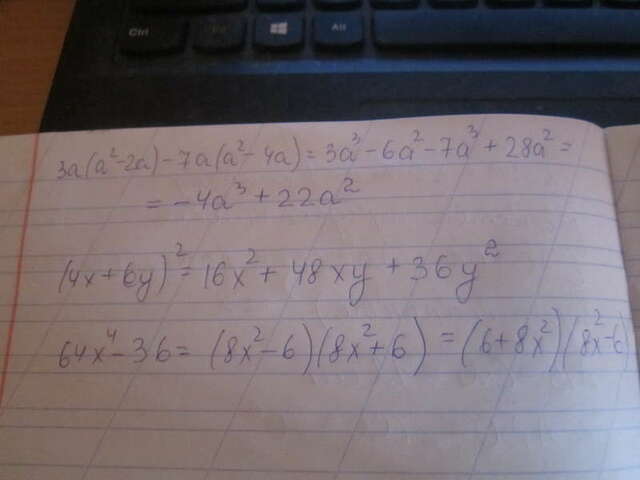 3a(a²-2a)-7a(a²-4a)=3a³-6a²-7a³+28a²=
=-4a³+22a²
(4x+6y)²=16x²+48xy+36y²
64x⁴-36=(8x²-6)(8x²+6)=(6+8x²)(8x²-6)
Alt
Ctrl